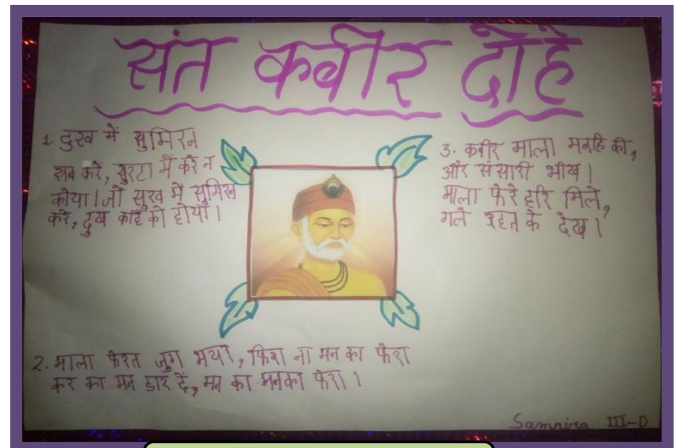 संत कबीर दोहे
1. दुख में सुमिरन
सब करे, सुख में करे न
कोया। जो सुख में सुमिरन
करे, दुख काहे को होया।
3. कबीर माला मनहि की,
और संसारी भीख।
माला फेरे हरि मिले,
गले रहट के देख।
2. माला फेरत जुग भया, फिरा ना मन का फेरा
कर का मन डार दें, मन का मनका फेरा।
Samaira III-D